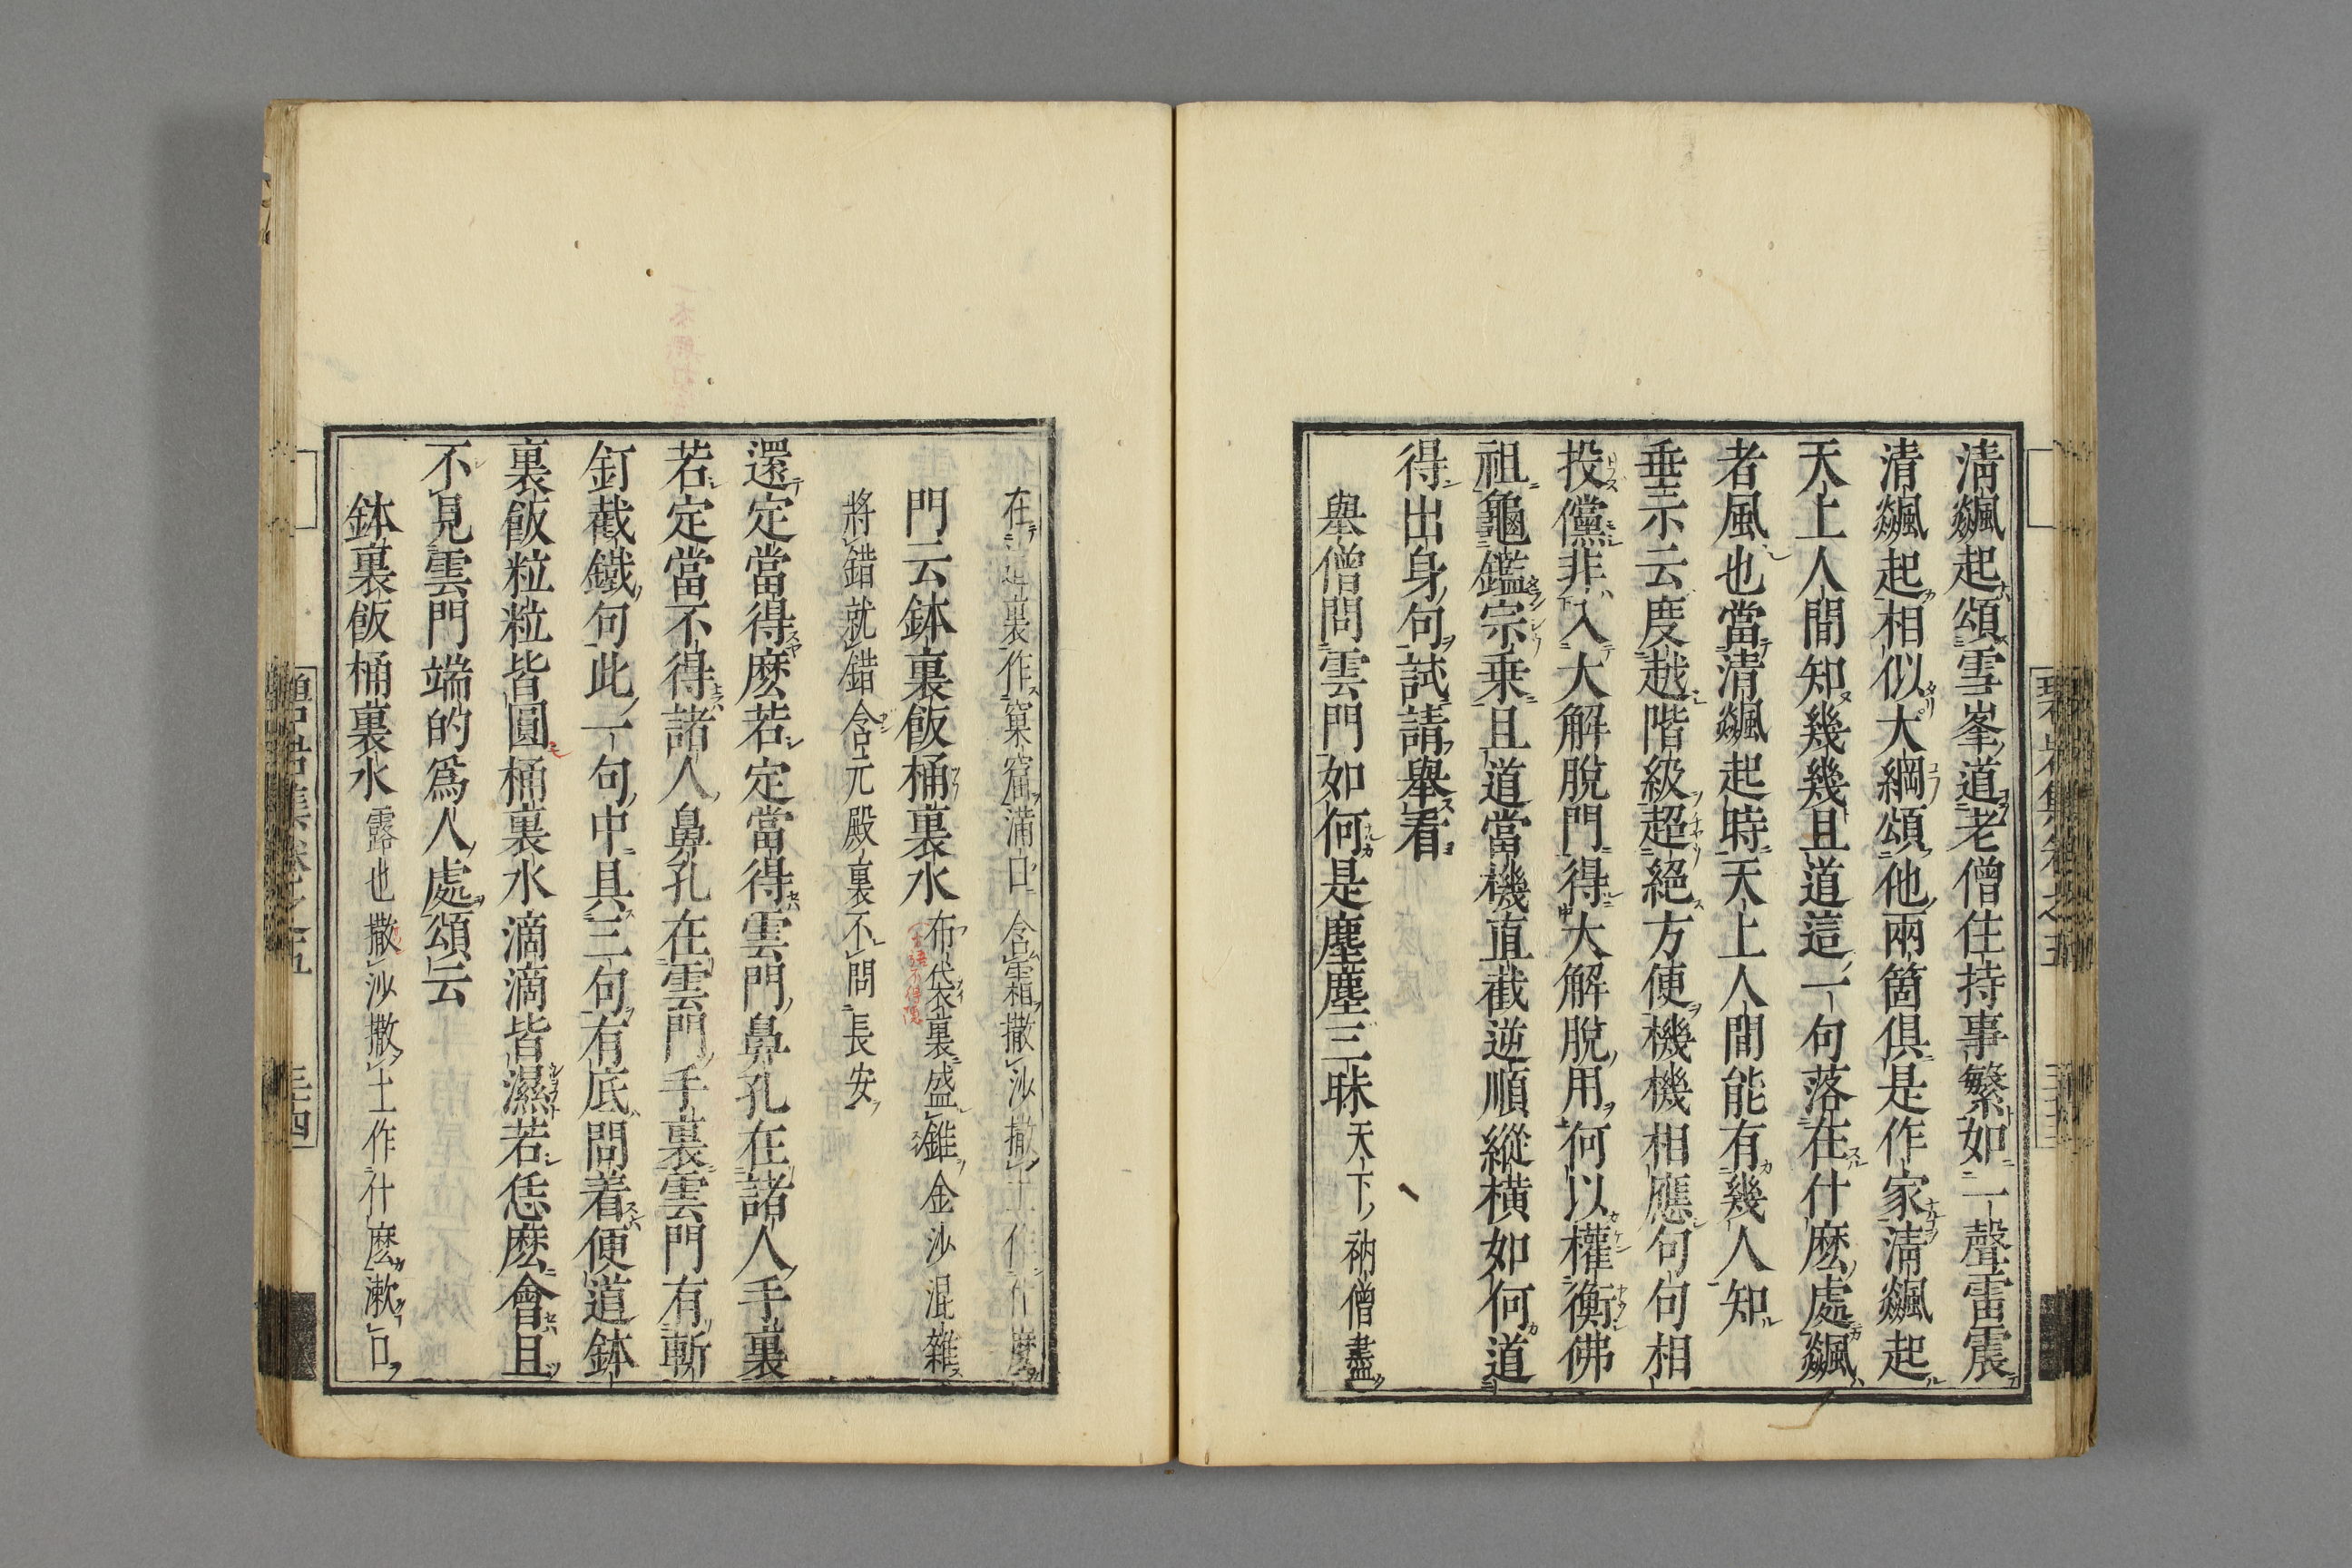 清飆起頌雪峯道老僧住持事繁如一聲雷震
清飆起相似大綱頌他兩箇俱是作家清飆起
天上人間知幾幾且道這一句落在什麽處飆
者風也當清飆起時天上人間能有幾人知
垂示云度越階級超絕方便機機相應句句相
投儻非入大解脫門得大解脫用何以權衡佛
祖龜鑑宗乗且道當機直截逆順縱橫如何道
得出身句試請舉看
舉僧問雲門如何是塵塵三昧天下衲僧盡
在這裏作窠窟滿口含霜撒沙撒土作什麽
門云鉢裏飯桶裏水布袋裏盛錐金沙混雜
將錯就錯含元殿裏不問長安
還定當得麽若定當得雲門鼻孔在諸人手裏
若定當不得諸人鼻孔在雲門手裏雲門有斬
釘截鐵句此一句中具三句有底問着便道鉢
裏飯粒粒皆圓桶裏水滴滴皆濕若恁麽會且
不見雲門端的爲人處頌云
鉢裏飯桶裏水露也撒沙撒土作什麽漱口